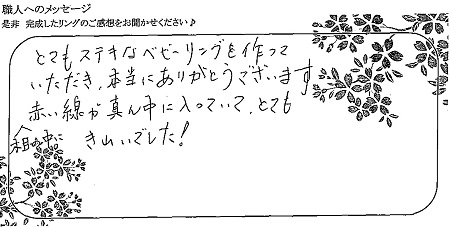 職人へのメッセージ
是非 完成したリングのご感想をお聞かせください♪
とてもステキなベビーリングを作って
いただき、本当にありがとうございます
赤い線が真ん中に入っていて、とても
きれいでした!